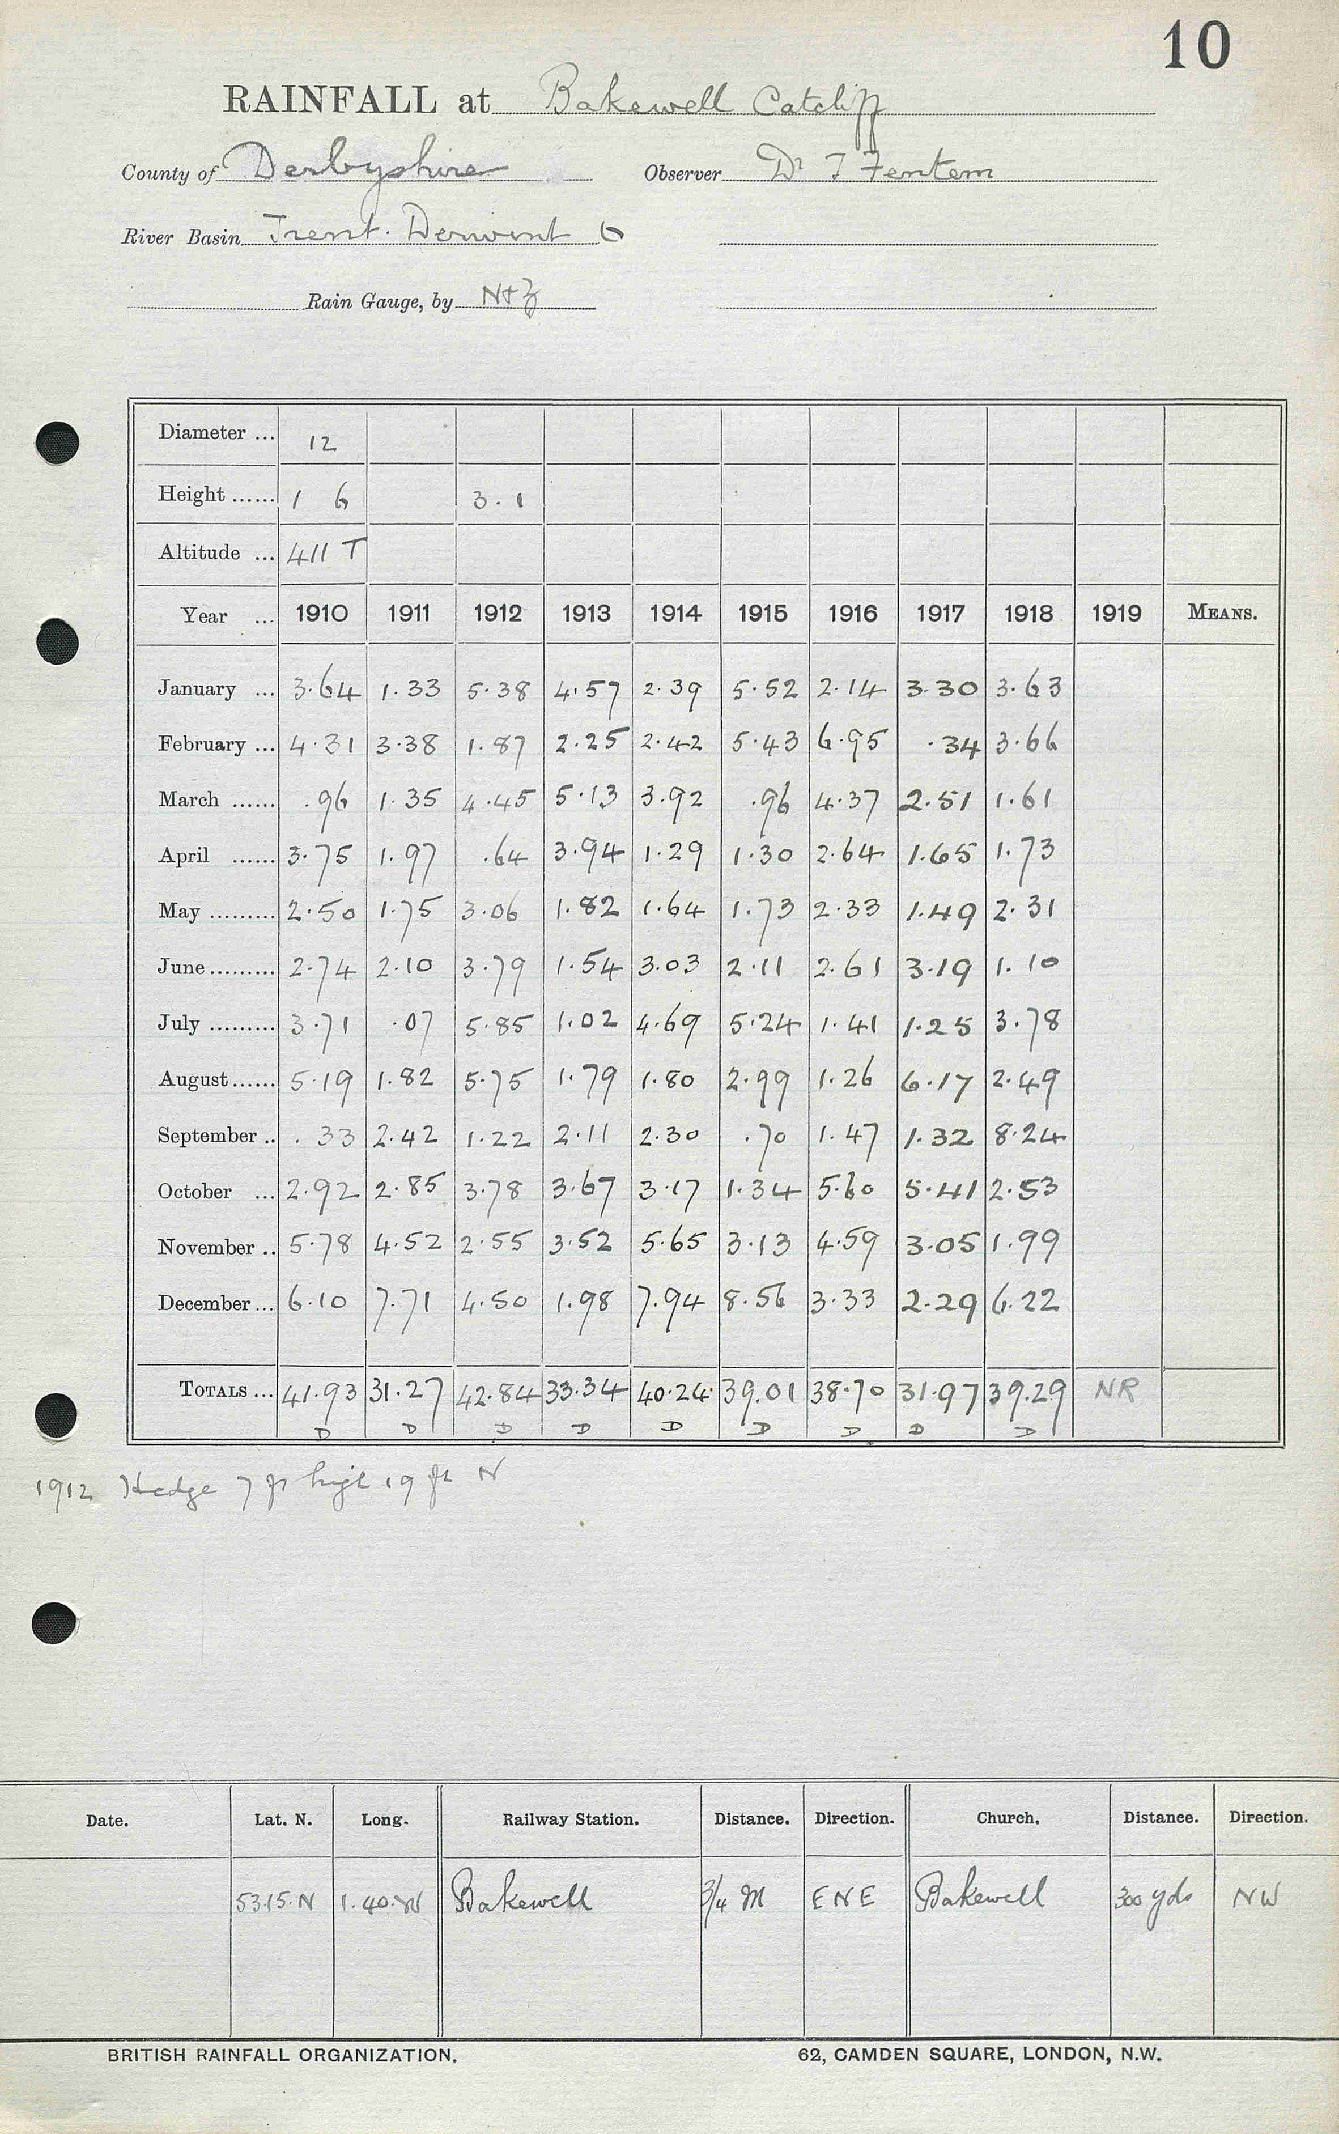 10
RAINFALL at Bakewell Catcliff
County of Derbyshire Observer Dr T Fentem
River Basin Trent. Derwent 6
Rain Gauge, by N+Z
Diameter ... 12
Height ...... 1 6 3.1
Altitude ... 411 T
Year ... 1910 1911 1912 1913 1914 1915 1916 1917 1918 1919 MEANS.
January ... 3.64 1.33 5.38 4.57 2.39 5.52 2.14 3.30 3.63
February ... 4.31 3.38 1.87 2.25 2.42 5.43 6.95 .34 3.66
March ...... .96 1.35 4.45 5.13 3.92 .96 4.37 2.51 1.61
April ...... 3.75 1.97 .64 3.94 1.29 1.30 2.64 1.65 1.73
May ......... 2.50 1.75 3.06 1.82 1.64 1.73 2.33 1.49 2.31
June......... 2.74 2.10 3.79 1.54 3.03 2.11 2.61 3.19 1.10
July ......... 3.71 .07 5.85 1.02 4.69 5.24 1.41 1.25 3.78
August...... 5.19 1.82 5.75 1.79 1.80 2.99 1.26 6.17 2.49
September .. .33 2.42 1.22 2.11 2.30 .70 1.47 1.32 8.24
October ... 2.92 2.85 3.78 3.67 3.17 1.34 5.60 5.41 2.53
November .. 5.78 4.52 2.55 3.52 5.65 3.13 4.59 3.05 1.99
December ... 6.10 7.71 4.50 1.98 7.94 8.56 3.33 2.29 6.22
TOTALS ... 41.93 31.27 42.84 33.34 40.24 39.01 38.70 31.97 39.29 NR
D D D D D D D D D
1912 Hedge 7 ft high 19 ft N
Date. Lat. N. Long. Railway Station. Distance. Direction. Church. Distance. Direction.
53.15.N 1.40.W Bakewell 3/4 M ENE Bakewell 300 yds NW
BRITISH RAINFALL ORGANIZATION. 62, CAMDEN SQUARE, LONDON, N.W.